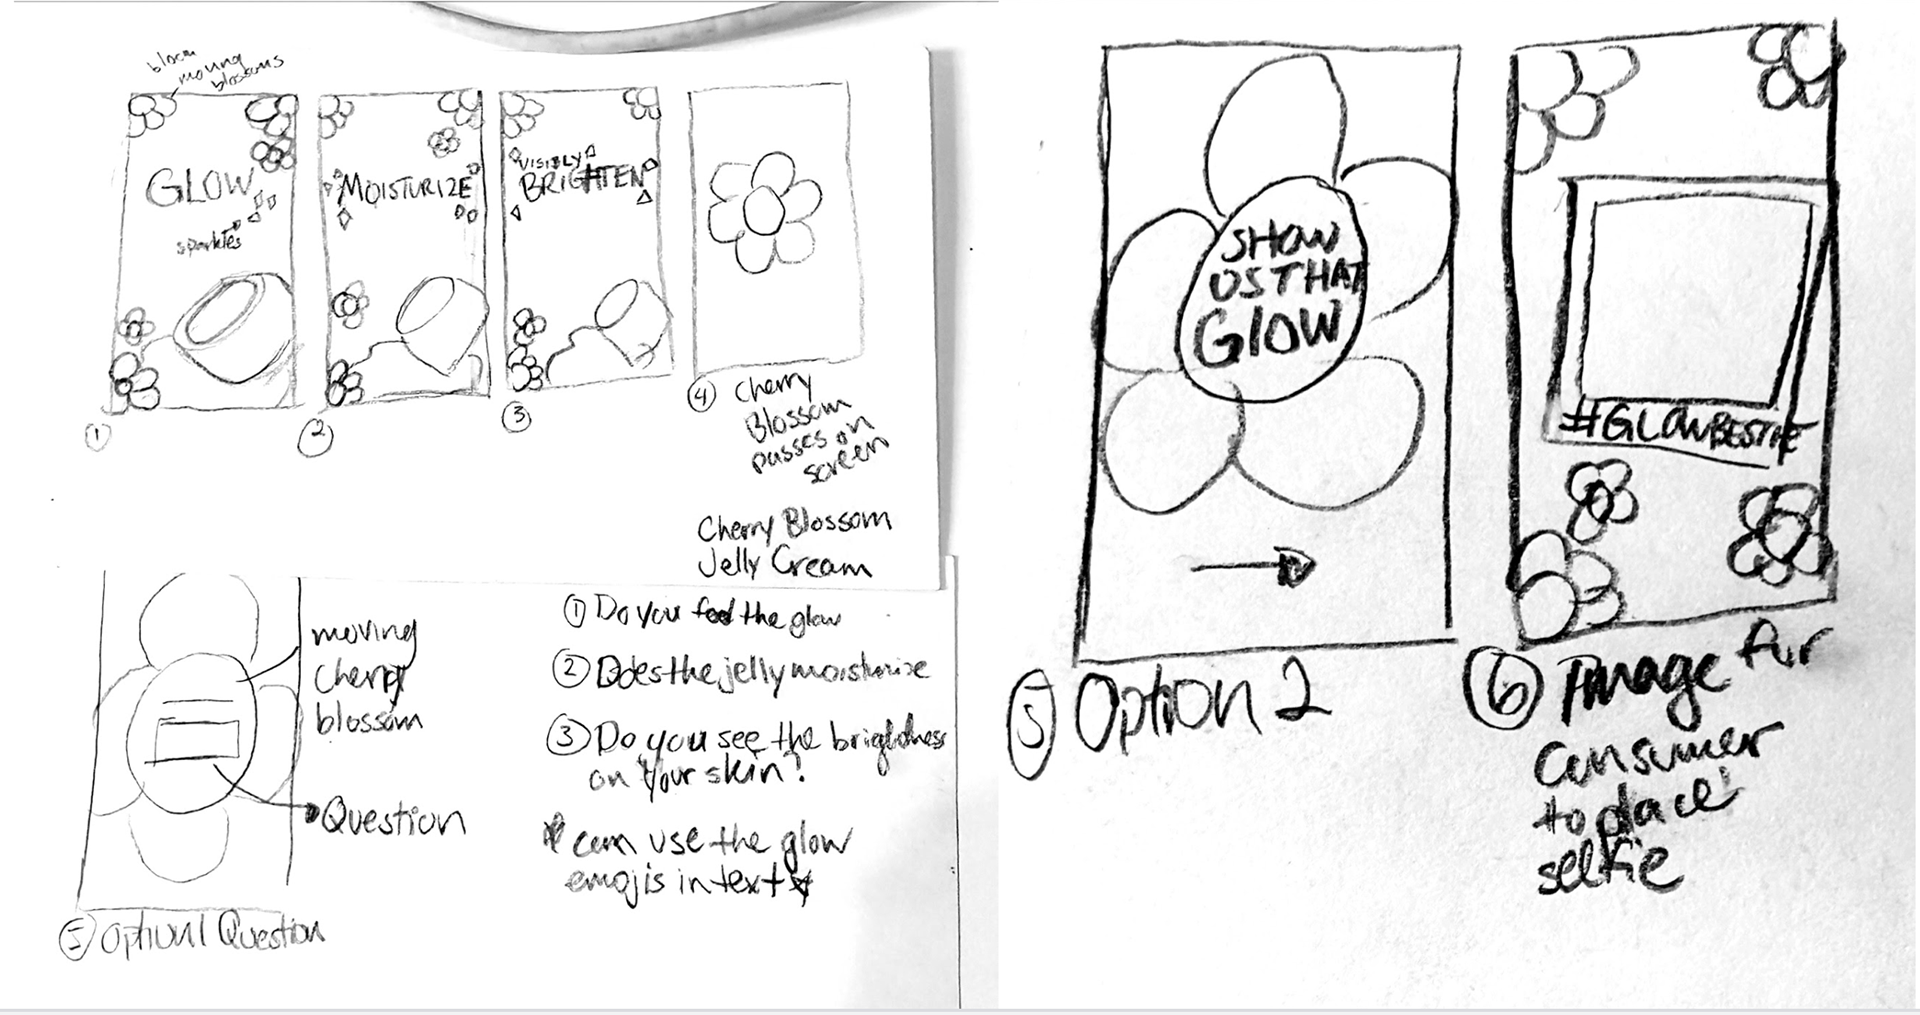 bloom
moving
blossoms
GLOW
sparkles
MOISTURIZE
VISIBLY
BRIGHTEN
①
②
③
④ Cherry
Blossom
passes on
screen
Cherry Blossom
Jelly Cream
moving
cherry
blossom
Question
⑤ Option 1 Question
① Do you feel the glow
② Does the jelly moisturize
③ Do you see the brightness
on your skin?
* can use the glow
emojis in text *
SHOW
US THAT
GLOW
⑤ Option 2
#GLOWBESTIE
⑥ Image for
consumer
to place
selfie